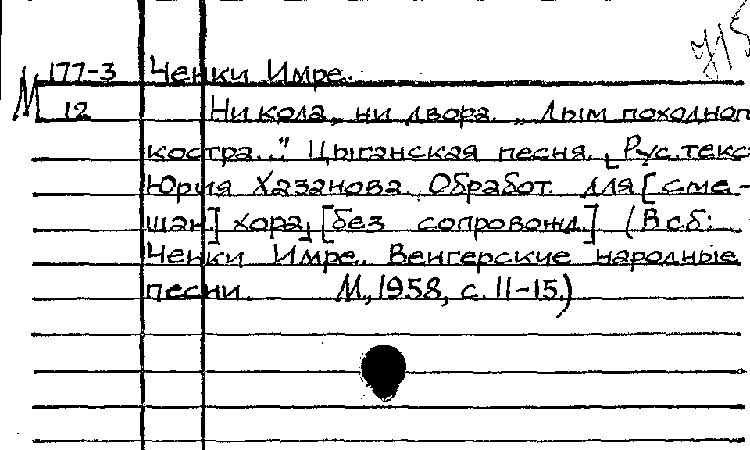 М 177-3 Ченки Имре.
12 Ни кола, ни двора. „Дым походног
костра..." Цыганская песня. [Рус. текс
Юрия Хазанова. Обработ. для [сме-
шан] хора], [без сопровожд.] (В сб:
Ченки Имре. Венгерские народные
песни. М., 1958, с. 11-15.)